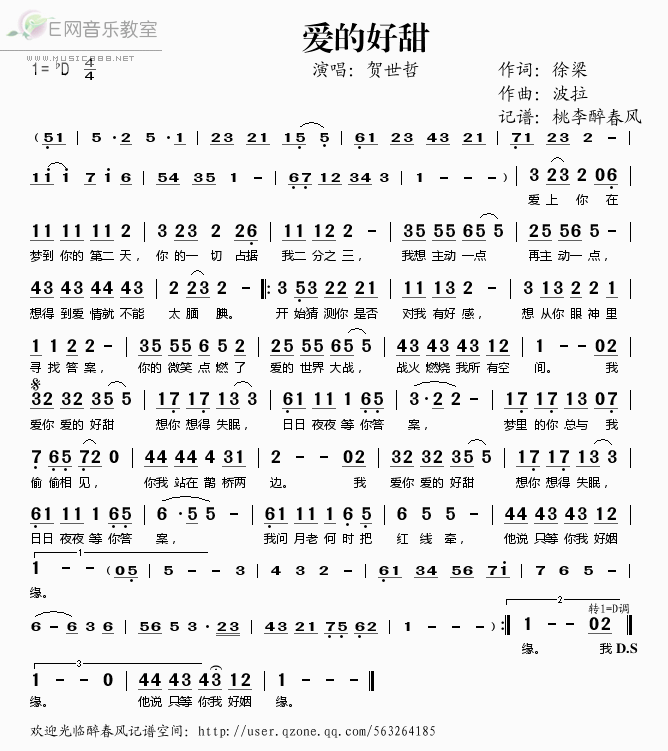 E网音乐教室
WWW.MUSIC888.NET
爱的好甜
1=♭D 4/4
演唱：贺世哲
作词：徐梁
作曲：波拉
记谱：桃李醉春风
(51 | 5 · 2 5 · 1 | 23 21 15 5 | 61 23 43 21 | 71 23 2 - |
11 i 7 i 6 | 54 35 1 - | 67 12 34 3 | 1 - - -) | 3 23 2 06 |
爱 上 你 在
11 11 11 2 | 3 23 2 26 | 11 12 2 - | 35 55 65 5 | 25 56 5 - |
梦到 你的 第二 天， 你 的一 切 占据 我二 分之 三， 我想 主动 一点 再主 动一 点，
43 43 43 43 | 2 23 2 - ‖: 3 53 22 21 | 11 13 2 - | 31 32 21 1 |
想得 到爱 情就 不能 太 腼 腆。 开 始猜 测你 是否 对我 有好 感， 想 从你 眼神 里
1 1 2 2 - | 35 55 65 5 | 22 55 65 5 | 43 43 43 22 | 1 - - 02 |
寻 找 答 案， 你的 微笑 点燃 了 爱的 世界 大战， 战火 燃烧 我所 有空 间。 我
32 32 35 5 | 17 17 13 3 | 61 11 11 65 | 3 · 2 2 - | 17 17 13 07 |
爱你 爱的 好甜 想你 想得 失眠， 日日 夜夜 等你 答 案， 梦里 的你 总与 我
7 65 72 0 | 44 44 4 31 | 2 - - 02 | 32 32 35 5 | 17 17 13 3 |
偷 偷相 见， 你我 站在 鹊 桥两 边。 我 爱你 爱的 好甜 想你 想得 失眠，
61 11 1 65 | 6 · 5 5 - | 61 11 11 65 | 6 5 5 - | 44 43 43 12 |
日日 夜夜 等 你答 案， 我问 月老 何时 把 红 线 牵， 他说 只等 你我 好姻
1
1 - - (05 | 5 - - 3 | 4 3 2 - | 61 23 56 7i | 7 6 5 - |
缘。
2
转1=D调
6 - 6 3 6 | 56 5 3 · 23 | 43 21 75 62 | 1 - - -) :‖ 1 - - 02 ‖
缘。 我 D.S
3
1 - - 0 | 44 43 43 12 | 1 - - - ‖
缘。 他说 只等 你我 好姻 缘。
欢迎光临醉春风记谱空间：http://user.qzone.qq.com/563264185